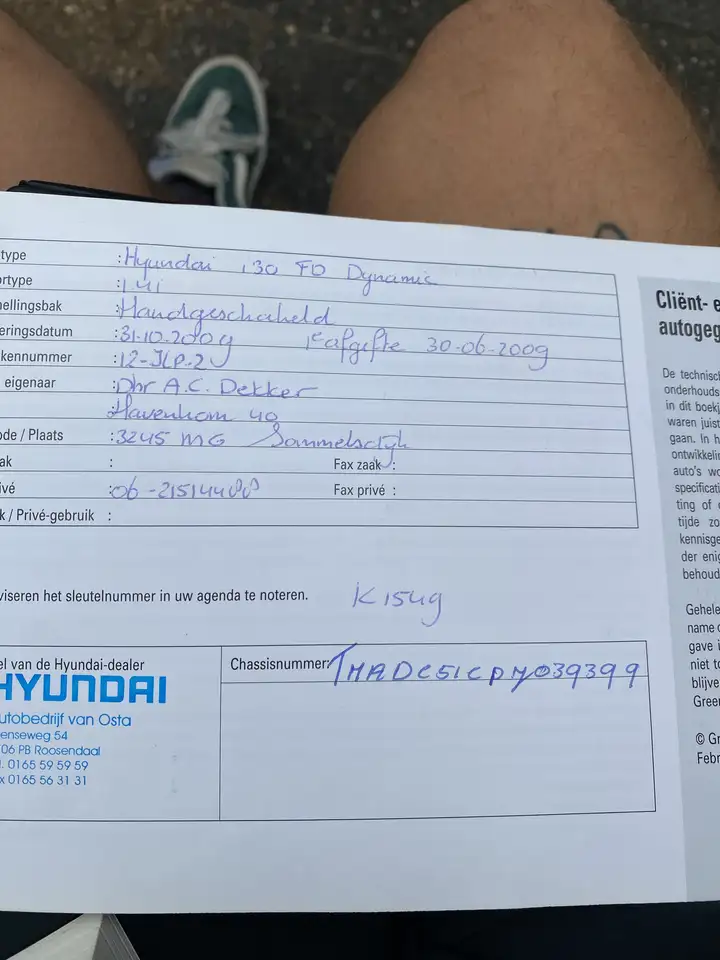 type :Hyundai i30 FD Dynamic
rtype :1.4i
nellingsbak :Handgeschakeld
eringsdatum :31.10.2009 1e afgifte 30-06-2009
kennummer :12-JLP-2
eigenaar :Dhr A.C. Dekker
:Havenhom 40
ode / Plaats :3245 MG Sommelsdijk
ak : Fax zaak :
ivé :06-21514488 Fax privé :
k / Privé-gebruik :
viseren het sleutelnummer in uw agenda te noteren. K1549
el van de Hyundai-dealer
HYUNDAI
utobedrijf van Osta
enseweg 54
06 PB Roosendaal
l. 0165 59 59 59
x 0165 56 31 31
Chassisnummer:
Cliënt- e
autogeg
De technisch
onderhouds
in dit boekj
waren juist
gaan. In h
ontwikkelin
auto's wo
specificati
ting of
tijde zo
kennisge
der enig
behoud
Gehele
name o
gave i
niet to
blijve
Green
© Gr
Febr